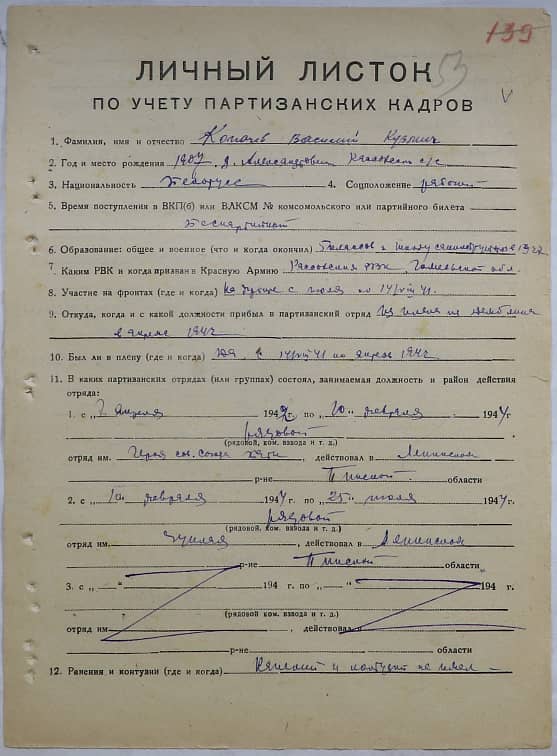 139
53
ЛИЧНЫЙ ЛИСТОК
ПО УЧЕТУ ПАРТИЗАНСКИХ КАДРОВ
1. Фамилия, имя и отчество Василий Кузьмич
2. Год и место рождения 1907 д. с/с
3. Национальность Белорусс 4. Соцположение рабочий
5. Время поступления в ВКП(б) или ВЛКСМ № комсомольского или партийного билета
Беспартийный
6. Образование: общее и военное (что и когда окончил)
7. Каким РВК и когда призван в Красную Армию РВК Гомельской обл.
8. Участие на фронтах (где и когда) на фронте с июля по 14/VIII 41.
9. Откуда, когда и с какой должности прибыл в партизанский отряд Из плена не
в апреле 1942
10. Был ли в плену (где и когда) Да с 14/VIII 41 по апрель 1942
11. В каких партизанских отрядах (или группах) состоял, занимаемая должность и район действия
отряда:
1. с „ 2 апреля 1942г. по „10“ февраля 1944г.
рядовой
(рядовой, ком. взвода и т. д.)
отряд им. Героя сов. союза , действовал в Ленинском
р-не Пинской области
2. с „10“ февраля 1944г. по „25“ июля 1944г.
рядовой
(рядовой, ком. взвода и т. д.)
отряд им. Чуклая , действовал в Ленинском
р-не Пинской области
3. с „ “ 194 г. по „ “ 194 г.
(рядовой ком. взвода и т. д.)
отряд им. , действовал в
р-не области
12. Ранения и контузии (где и когда) Ранений и контузий не имел